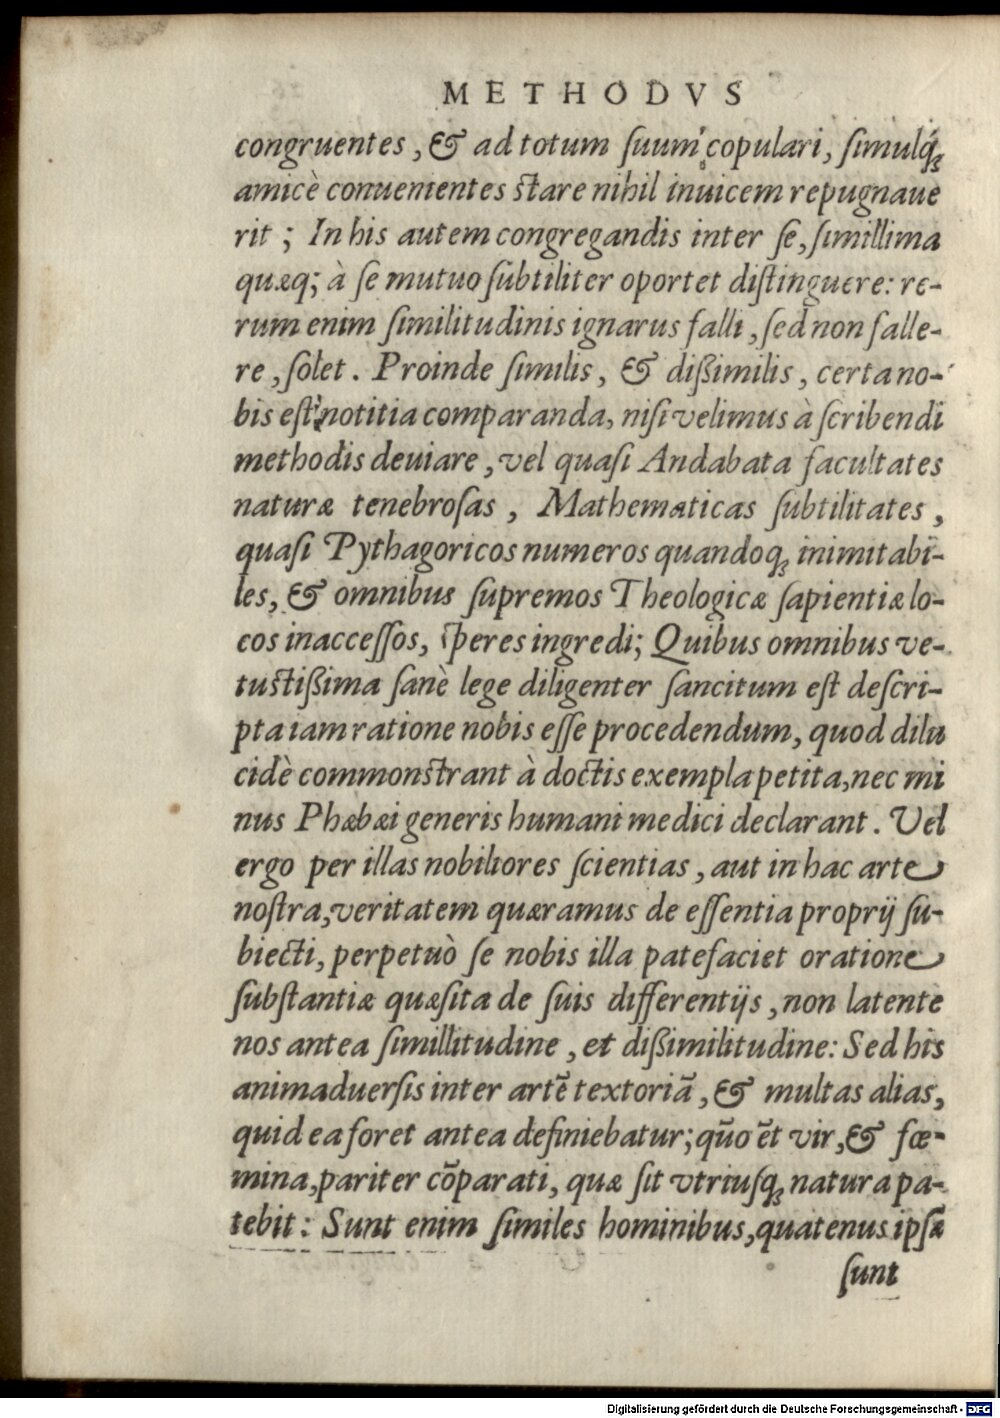 METHODVS
congruentes, & ad totum ſuum copulari, ſimulq́;
amicè conuenientes ſtare nihil inuicem repugnaue
rit; In his autem congregandis inter ſe, ſimillima
quæq; à ſe mutuo ſubtiliter oportet diſtinguere: re-
rum enim ſimilitudinis ignarus falli, ſed non falle-
re, ſolet. Proinde ſimilis, & dißimilis, certa no-
bis eſt notitia comparanda, niſi velimus à ſcribendi
methodis deuiare, vel quaſi Andabata facultates
naturæ tenebroſas, Mathematicas ſubtilitates,
quaſi Pythagoricos numeros quandoq; inimitabi-
les, & omnibus ſupremos Theologicæ ſapientiæ lo-
cos inacceſſos, ſperes ingredi; Quibus omnibus ve-
tuſtißima ſanè lege diligenter ſancitum eſt deſcri-
pta iam ratione nobis eſſe procedendum, quod dilu
cidè commonſtrant à doctis exempla petita, nec mi
nus Phæbæi generis humani medici declarant. Vel
ergo per illas nobiliores ſcientias, aut in hac arte
noſtra, veritatem quæramus de eſſentia proprij ſu-
biecti, perpetuò ſe nobis illa patefaciet oratione
ſubſtantiæ quæſita de ſuis differentijs, non latente
nos antea ſimillitudine, et dißimilitudine: Sed his
animaduerſis inter artē textoriā, & multas alias,
quid ea foret antea definiebatur; quō ēt vir, & fœ-
mina, pariter cōparati, quæ ſit vtriuſq; natura pa-
tebit: Sunt enim ſimiles hominibus, quatenus ipſæ
ſunt
Digitalisierung gefördert durch die Deutsche Forschungsgemeinschaft - DFG